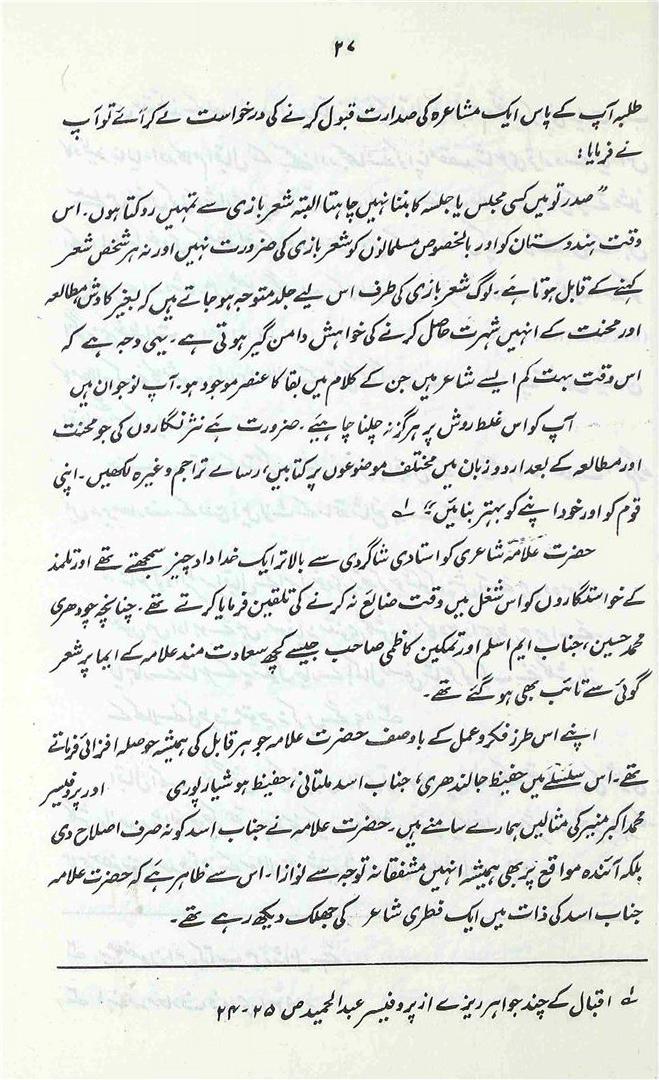 ۲۷
طلبہ آپ کے پاس ایک مشاعرہ کی صدارت قبول کرنے کی درخواست لے کر آئے تو آپ
نے فرمایا:
”صدر تو میں کسی مجلس یا جلسہ کا بننا نہیں چاہتا البتہ شعر بازی سے تمہیں روکتا ہوں۔ اس
وقت ہندوستان کو اور بالخصوص مسلمانوں کو شعر بازی کی ضرورت نہیں اور نہ ہر شخص شعر
کہنے کے قابل ہوتا ہے۔ لوگ شعر بازی کی طرف اس لیے جلد متوجہ ہو جاتے ہیں کہ بغیر کاوش، مطالعہ
اور محنت کے انہیں شہرت حاصل کرنے کی خواہش دامن گیر ہوتی ہے۔ یہی وجہ ہے کہ
اس وقت بہت کم ایسے شاعر ہیں جن کے کلام میں بقا کا عنصر موجود ہو۔ آپ نوجوان ہیں
آپ کو اس غلط روش پر ہرگز نہ چلنا چاہیئے۔ ضرورت ہے نثر نگاروں کی جو محنت
اور مطالعہ کے بعد اردو زبان میں مختلف موضوعوں پر کتابیں، رسالے تراجم وغیرہ لکھیں۔ اپنی
قوم کو اور خود اپنے کو بہتر بنائیں“ ۱؎
حضرت علامہؒ شاعری کو استادی شاگردی سے بالاتر ایک خداداد چیز سمجھتے تھے اور تلمذ
کے خواستگاروں کو اس شغل میں وقت ضائع نہ کرنے کی تلقین فرمایا کرتے تھے۔ چنانچہ چودھری
محمد حسین، جناب ایم اسلم اور تمکین کاظمی صاحب جیسے کچھ سعادت مند علامہ کے ایما پر شعر
گوئی سے تائب بھی ہو گئے تھے۔
اپنے اس طرز فکر و عمل کے باوصف حضرت علامہ جوہر قابل کی ہمیشہ حوصلہ افزائی فرماتے
تھے۔ اس سلسلے میں حفیظ جالندھری، جناب اسد ملتانی، حفیظ ہوشیارپوری اور پروفیسر
محمد اکبر منیر کی مثالیں ہمارے سامنے ہیں۔ حضرت علامہ نے جناب اسد کو نہ صرف اصلاح دی
بلکہ آئندہ مواقع پر بھی ہمیشہ انہیں مشفقانہ توجہ سے نوازا۔ اس سے ظاہر ہے کہ حضرت علامہ
جناب اسد کی ذات میں ایک فطری شاعر کی جھلک دیکھ رہے تھے۔
۱؎ اقبال کے چند جواہر ریزے از پروفیسر عبدالحمید ص ۲۵-۲۴